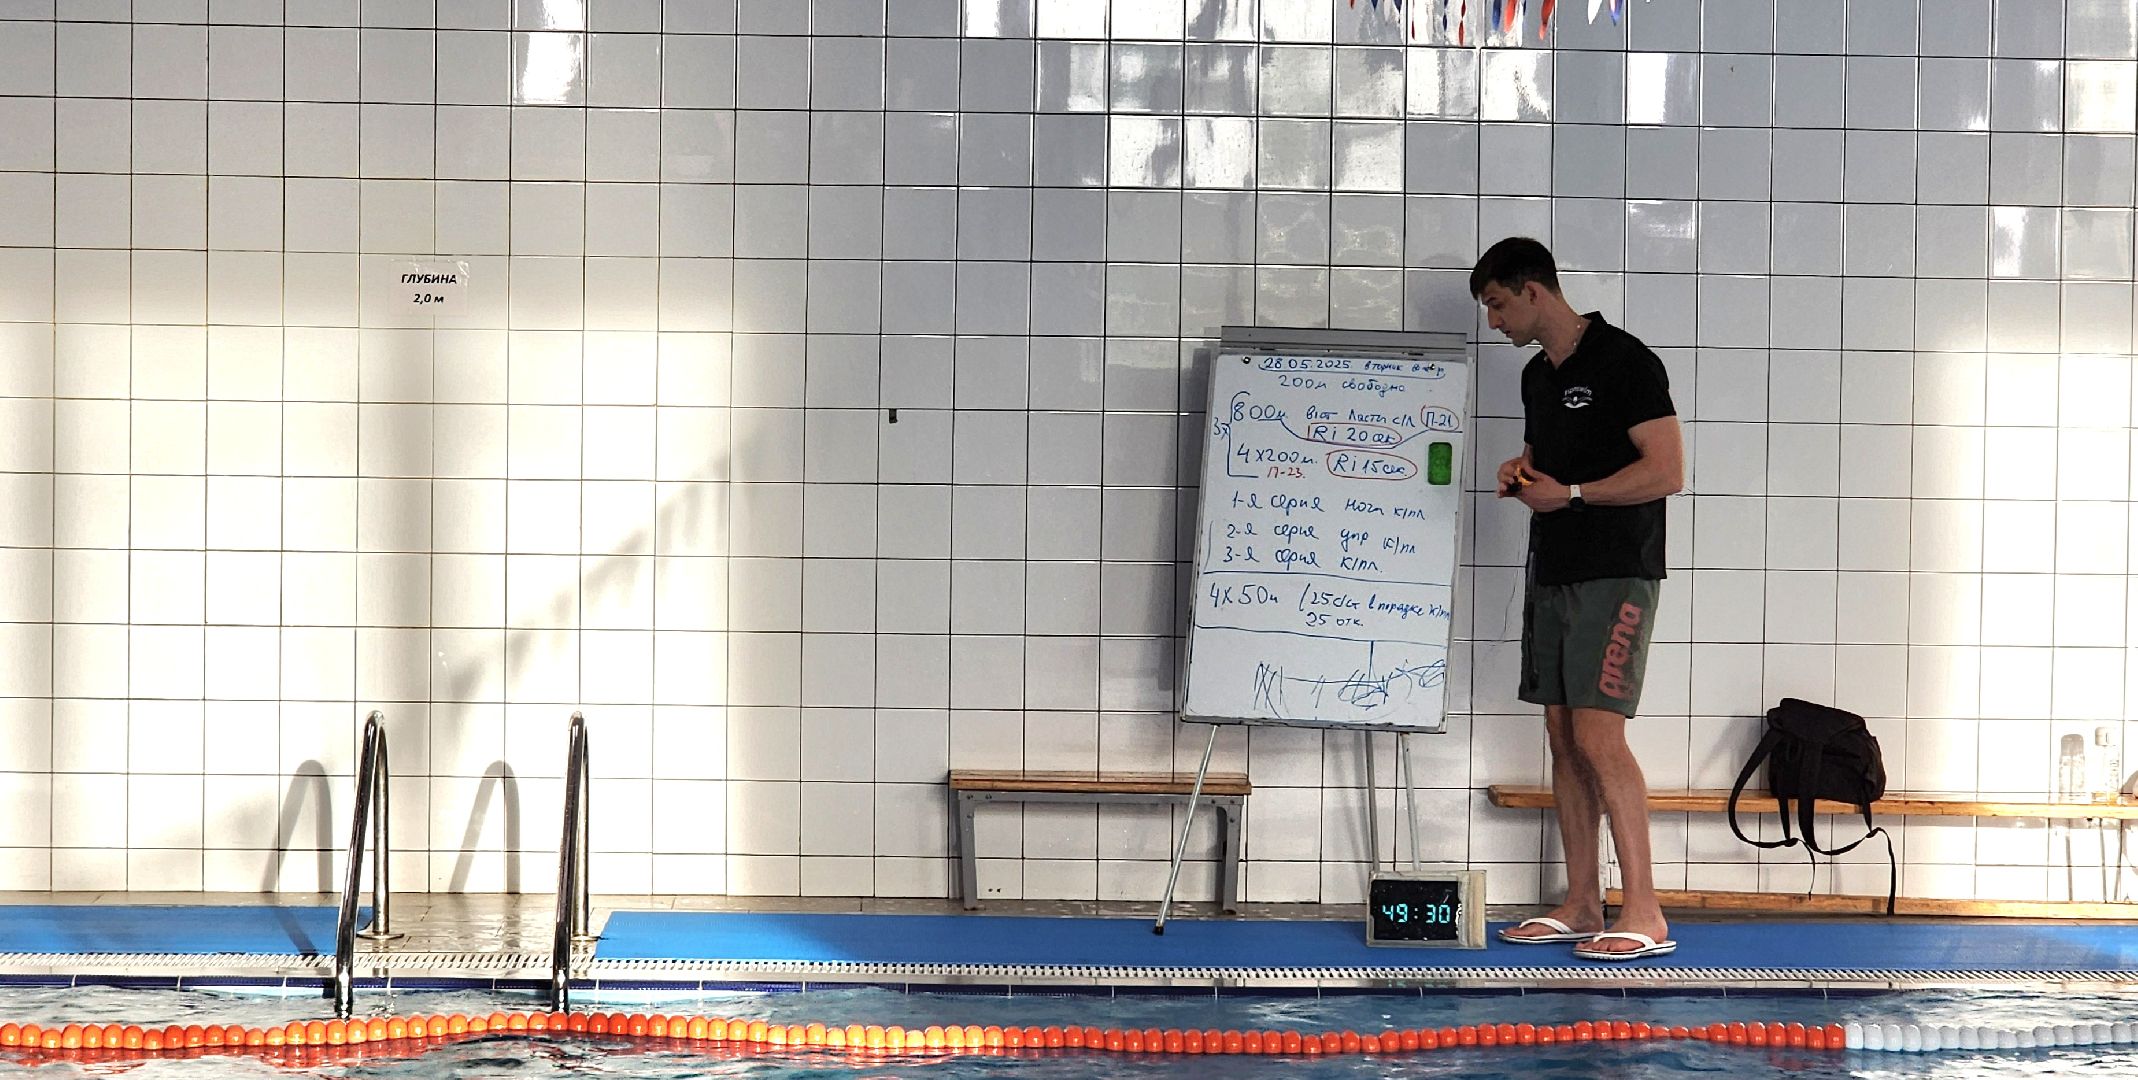 ГЛУБИНА
2,0 м
28.05.2025 вторник
200м свободно
3х
800м в/ст ласты с/л П-21
Ri 20 сек
4х200м. Ri 15 сек.
П-23.
1-я серия ноги к/пл
2-я серия упр к/пл
3-я серия к/пл.
4х50м (25 с/ст в порядке к/пл
25 отк.
arena
49:30